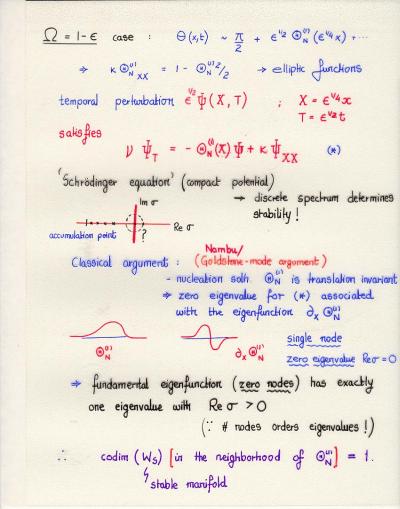 Ω = 1-ε case : Θ(x,t) ~ π/2 + ε^{1/2} Θ_N^{(1)}(ε^{1/4}x) + ...
⇒ κ Θ_N^{(1)}_{XX} = 1 - Θ_N^{(1)2}/2 → elliptic functions
temporal perturbation ε^{1/2} Ψ(X,T) ; X = ε^{1/4}x
T = ε^{1/2}t
satisfies
ν Ψ_T = - Θ_N^{(1)}(X) Ψ + κ Ψ_{XX} (*)
'Schrödinger equation' (compact potential)
→ discrete spectrum determines
stability!
Im σ
Re σ
accumulation point
?
Nambu/
Classical argument : (Goldstone-mode argument)
- nucleation soln. Θ_N^{(1)} is translation invariant
⇒ zero eigenvalue for (*) associated
with the eigenfunction ∂_X Θ_N^{(1)}
Θ_N^{(1)}
∂_X Θ_N^{(1)}
single node
zero eigenvalue Re σ = 0
⇒ fundamental eigenfunction (zero nodes) has exactly
one eigenvalue with Re σ > 0
(∵ # nodes orders eigenvalues!)
∴ codim (W_S) [in the neighborhood of Θ_N^{(1)}] = 1.
stable manifold